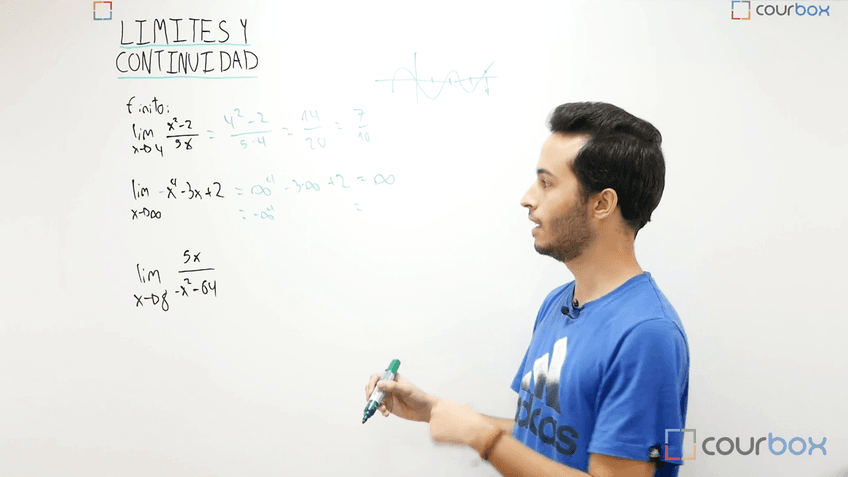 courbox
LIMITES Y
CONTINUIDAD
finito:
lim x→4 x²-2/5x = 4²-2/5·4 = 14/20 = 7/10
lim x→∞ -x⁴-3x+2 = ∞⁴ -3·∞+2 = ∞
= -∞⁴ =
lim x→8 5x/-x²-64
adidas
courbox